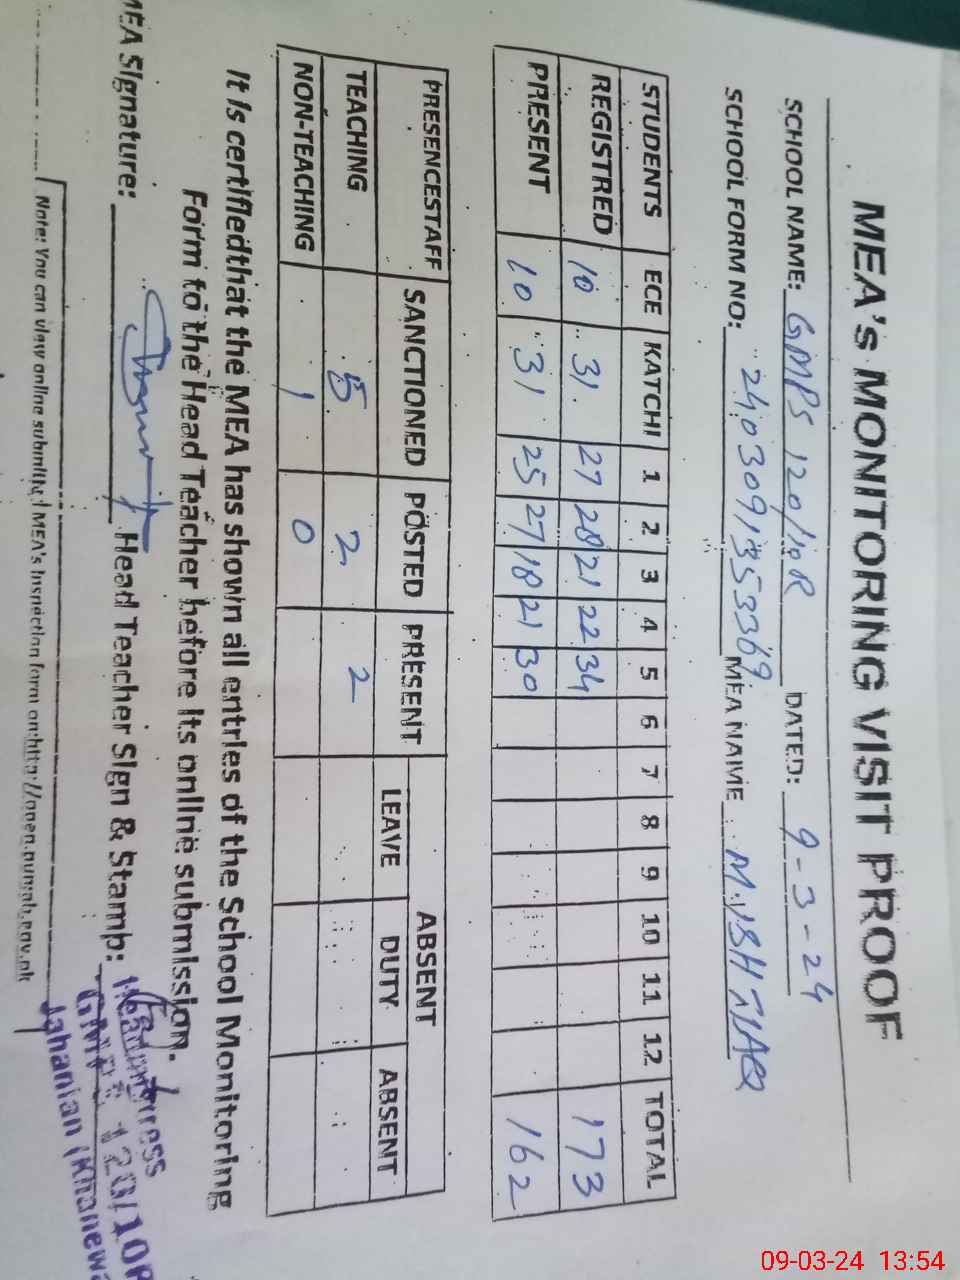 MEA's MONITORING VISIT PROOF
SCHOOL NAME: GMPS 120/10R DATED: 9-3-24
SCHOOL FORM NO: 24030913533369 MEA NAME M.ISHTIAQ
STUDENTS ECE KATCHI 1 2 3 4 5 6 7 8 9 10 11 12 TOTAL
REGISTRED 10 31 27 28 21 22 34 173
PRESENT 10 31 25 27 18 21 30 162
PRESENCESTAFF SANCTIONED POSTED PRESENT ABSENT
LEAVE DUTY ABSENT
TEACHING 5 2 2
NON-TEACHING 1 0
It is certifiedthat the MEA has shown all entries of the School Monitoring
Form to the Head Teacher before its online submission.
MEA Signature: Head Teacher Sign & Stamb:
Headmistress
GMPS 120/10R
Jahanian (Khanewa
Note: You can view online submitted MEA's Inspection form on:http://open.punjab.gov.pk
09-03-24 13:54